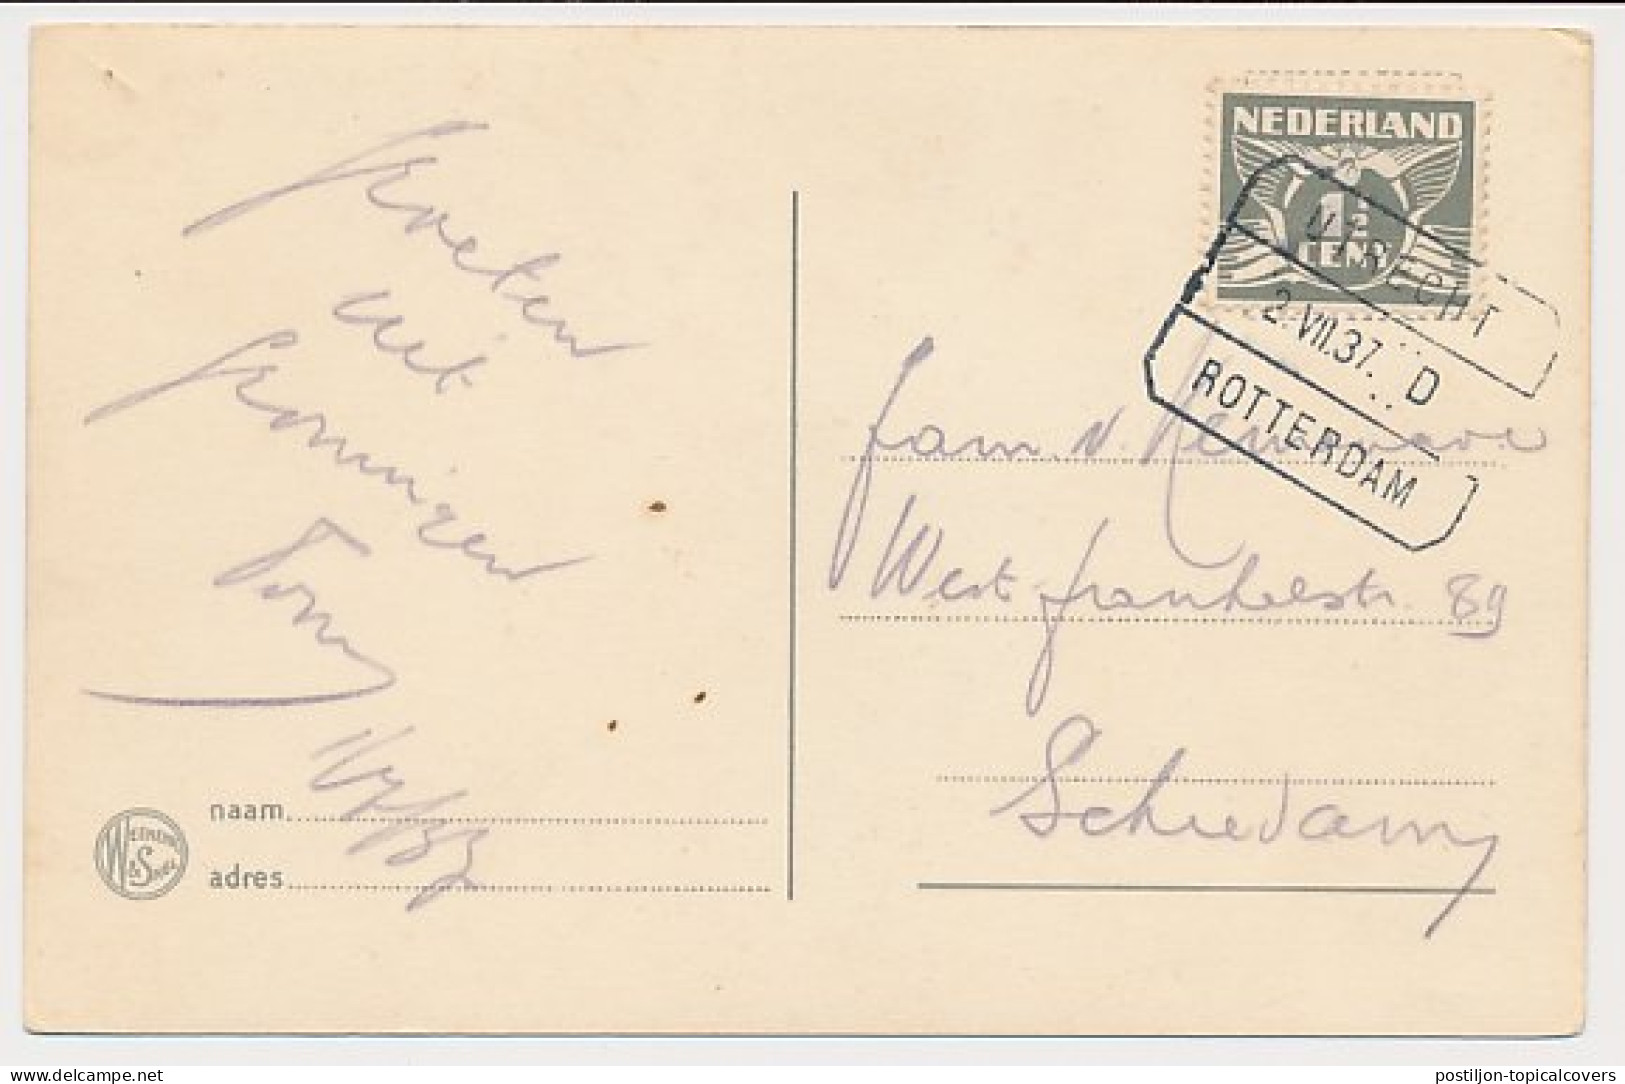 Groeten
uit
Groningen
Tom
naam
adres
NEDERLAND
1½
CENT
UTRECHT
2.VII.37. D
ROTTERDAM
fam. v.
West frankelstr. 89
Schiedam
delcampe.net
postiljon-topicalcovers